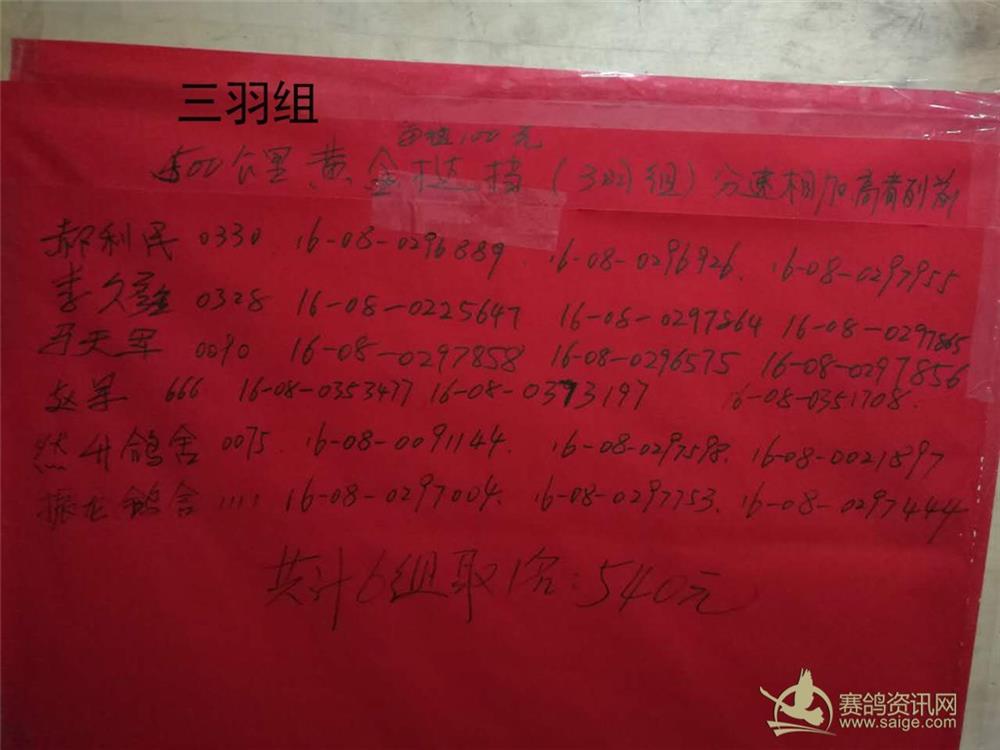 三羽组
每组100元
500公里黄金栏挡(3羽组)分速相加高者列前
郝利民 0330 16-08-0296889 16-08-0296926 16-08-0297955
李久 0328 16-08-0225647 16-08-0297864 16-08-0297865
马天军 0090 16-08-0297858 16-08-0296575 16-08-0297856
赵军 666 16-08-0353477 16-08-0393197 16-08-0351708
然升鸽舍 0075 16-08-0091144 16-08-0297598 16-08-0021897
振龙鸽舍 1111 16-08-0297004 16-08-0297753 16-08-0297444
共计6组取1名:540元
赛鸽资讯网
www.saige.com